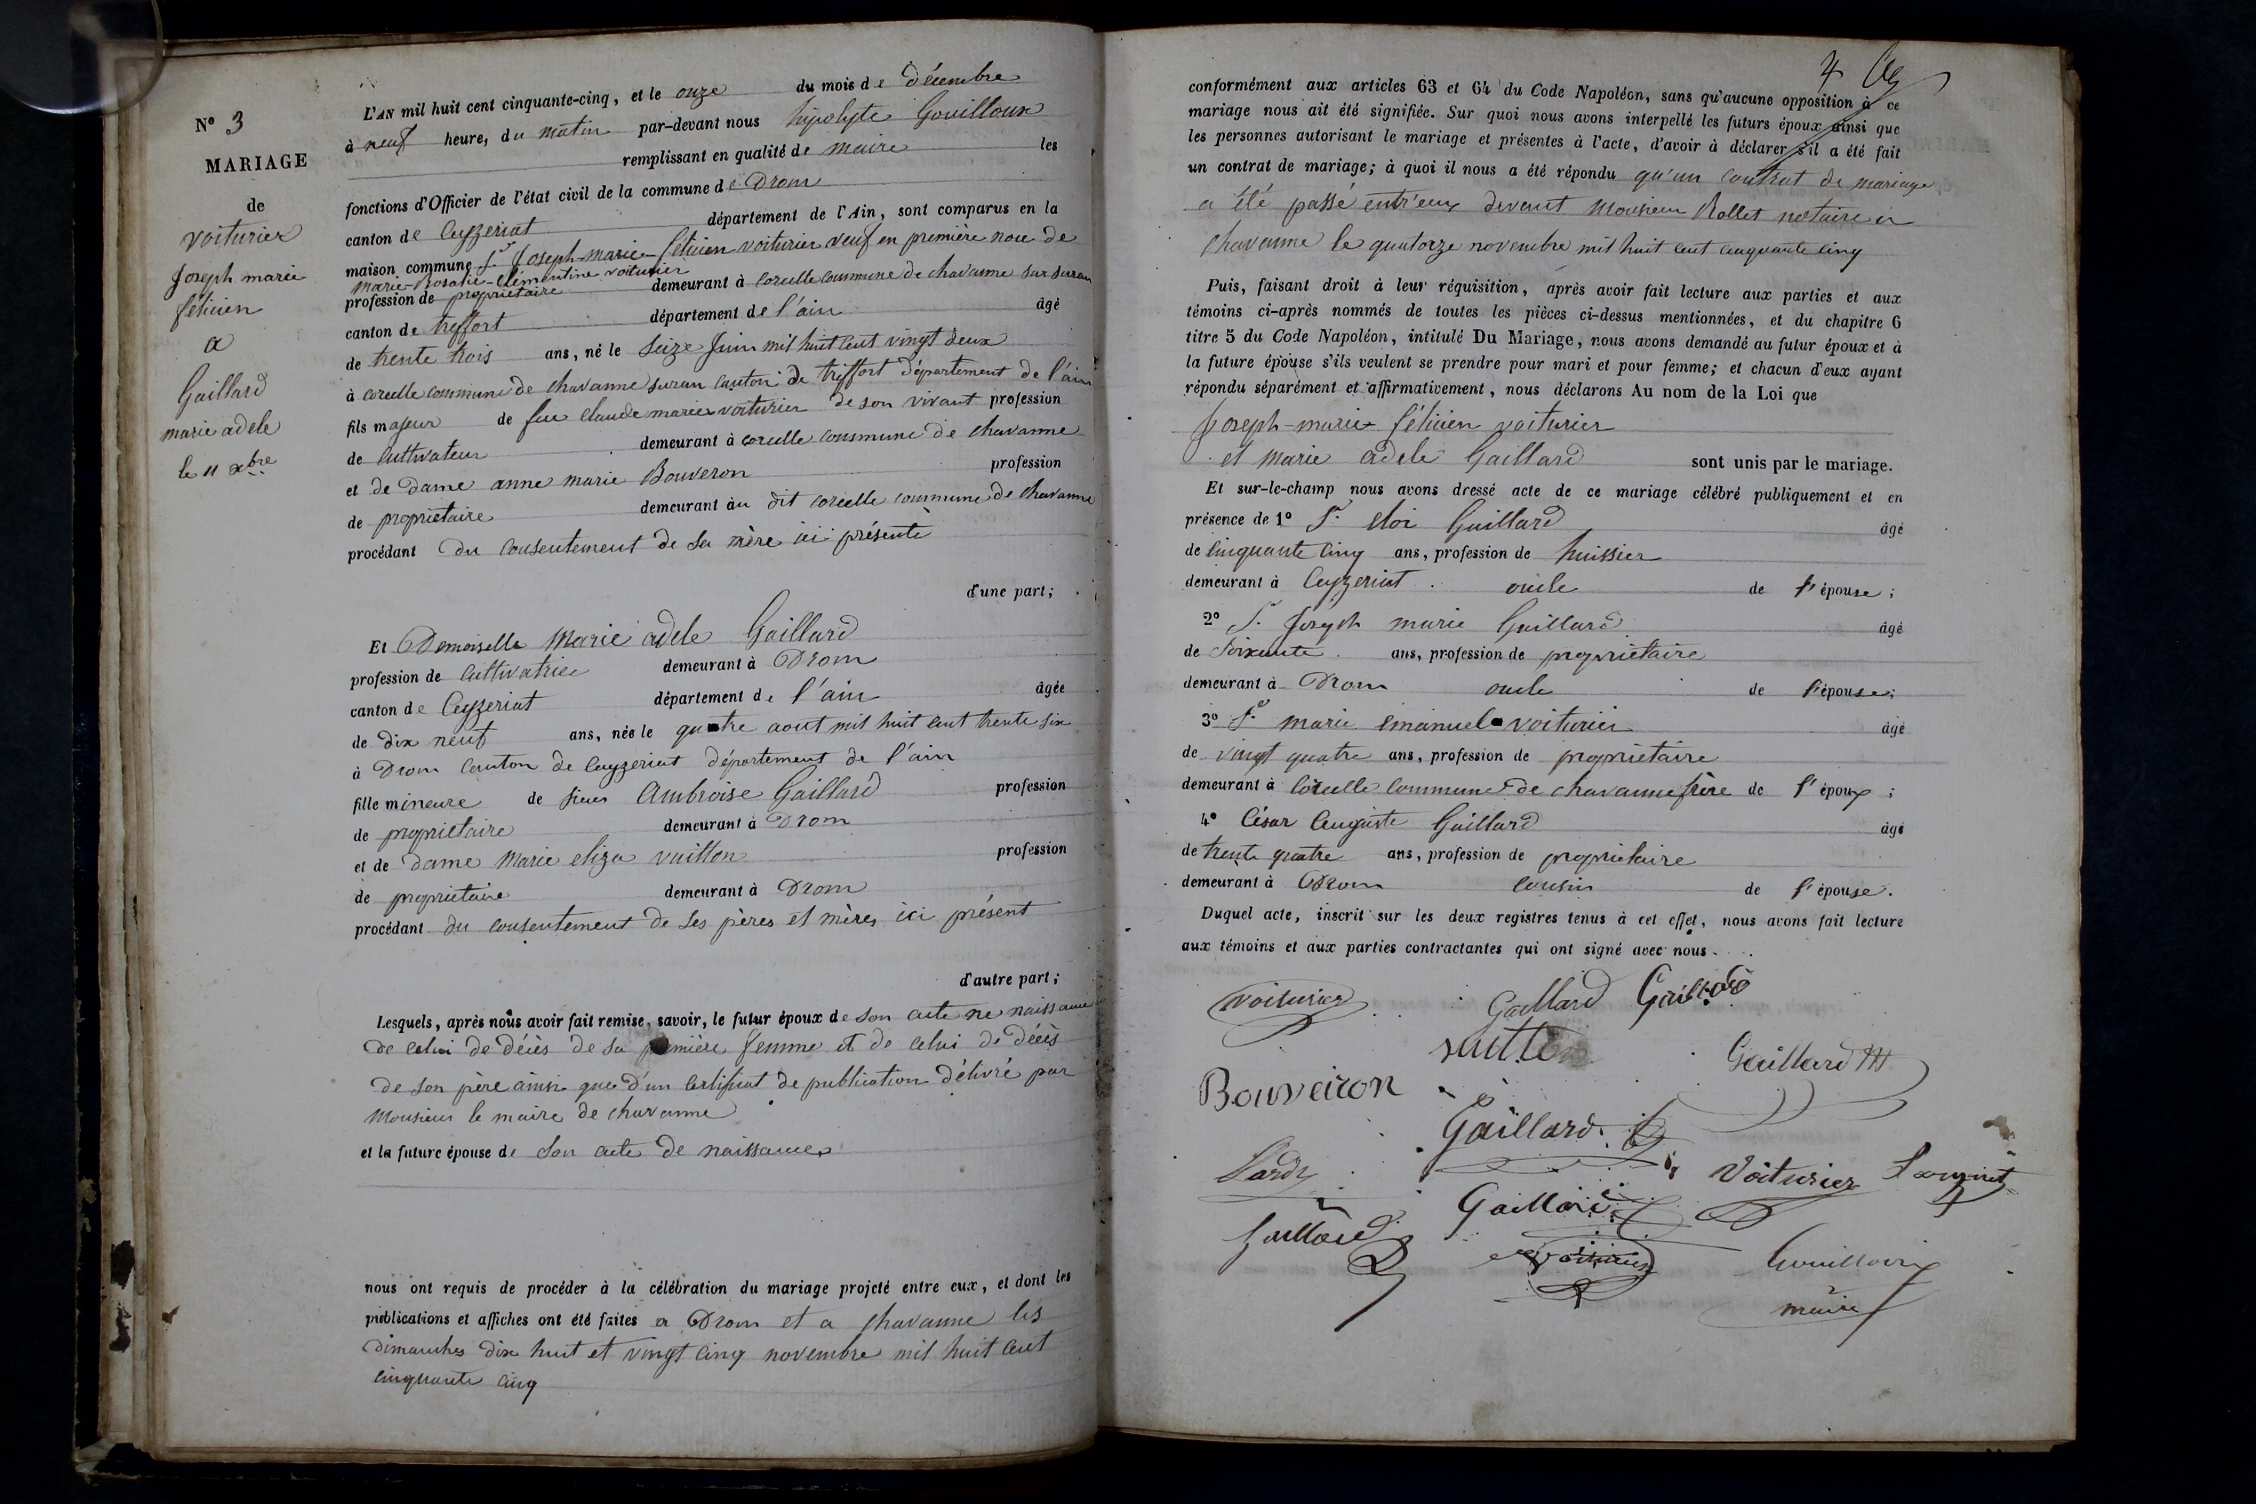 N° 3
MARIAGE
de
voiturier
Joseph marie
félicien
a
Gaillard
marie adele
le 11 xbre
L'AN mil huit cent cinquante-cinq, et le onze du mois de décembre
à neuf heure, du matin par-devant nous hipolyte Gouilloux
remplissant en qualité de maire les
fonctions d'Officier de l'état civil de la commune de Drom
canton de Ceyzeriat département de l'Ain, sont comparus en la
maison commune Sr Joseph-marie-félicien voiturier veuf en première noce de
marie-Rosalie-Clémentine voiturier
profession de propriétaire demeurant à corcelle commune de chavanne sur suran
canton de treffort département de l'ain âgé
de trente trois ans, né le seize Juin mil huit cent vingt deux
à corcelle commune de chavanne suran canton de treffort département de l'ain
fils majeur de feu claude marie voiturier de son vivant profession
de cultivateur demeurant à corcelle commune de chavanne
et de Dame anne marie Bouveron profession
de propriétaire demeurant au dit corcelle commune de chavanne
procédant du consentement de sa mère ici présente
d'une part;
Et Demoiselle marie adele Gaillard
profession de cultivatrice demeurant à Drom
canton de Ceyzeriat département de l'ain âgée
de dix neuf ans, née le quatre aout mil huit cent trente six
à Drom canton de Ceyzeriat département de l'ain
fille mineure de sieur Ambroise Gaillard profession
de propriétaire demeurant à Drom
et de dame marie eliza vuitton profession
de propriétaire demeurant à Drom
procédant du consentement de ses pères et mères ici présent
d'autre part;
Lesquels, après nous avoir fait remise, savoir, le futur époux de son acte ne naissance
de celui de décès de sa première femme et de celui de décès
de son père ainsi que d'un certificat de publication délivré par
Monsieur le maire de chavanne
et la future épouse de son acte de naissance
nous ont requis de procéder à la célébration du mariage projeté entre eux, et dont les
publications et affiches ont été faites a Drom et a chavanne les
dimanches dix huit et vingt cinq novembre mil huit cent
cinquante cinq
4
conformément aux articles 63 et 64 du Code Napoléon, sans qu'aucune opposition à ce
mariage nous ait été signifiée. Sur quoi nous avons interpellé les futurs époux ainsi que
les personnes autorisant le mariage et présentes à l'acte, d'avoir à déclarer s'il a été fait
un contrat de mariage; à quoi il nous a été répondu qu'un contrat de mariage
a été passé entr'eux devant Monsieur Rollet notaire a
chavanne le quatorze novembre mil huit cent cinquante cinq
Puis, faisant droit à leur réquisition, après avoir fait lecture aux parties et aux
témoins ci-après nommés de toutes les pièces ci-dessus mentionnées, et du chapitre 6
titre 5 du Code Napoléon, intitulé Du Mariage, nous avons demandé au futur époux et à
la future épouse s'ils veulent se prendre pour mari et pour femme; et chacun d'eux ayant
répondu séparément et affirmativement, nous déclarons Au nom de la Loi que
Joseph-marie félicien voiturier
et marie adele Gaillard sont unis par le mariage.
Et sur-le-champ nous avons dressé acte de ce mariage célébré publiquement et en
présence de 1° Sr eloi Gaillard âgé
de cinquante cinq ans, profession de huissier
demeurant à Ceyzeriat oncle de l'épouse;
2° Sr Joseph marie Gaillard âgé
de soixante ans, profession de propriétaire
demeurant à Drom oncle de l'épouse;
3° Sr marie emanuel voiturier âgé
de vingt quatre ans, profession de propriétaire
demeurant à corcelle commune de chavanne frère de l'époux;
4° César Auguste Gaillard âgé
de trente quatre ans, profession de propriétaire
demeurant à Drom cousin de l'épouse.
Duquel acte, inscrit sur les deux registres tenus à cet effet, nous avons fait lecture
aux témoins et aux parties contractantes qui ont signé avec nous.
voiturier Gaillard Gaillard
Gaillard
Bouveiron
Gaillard
Voiturier
Gaillard
Gaillard
Gouilloux
maire